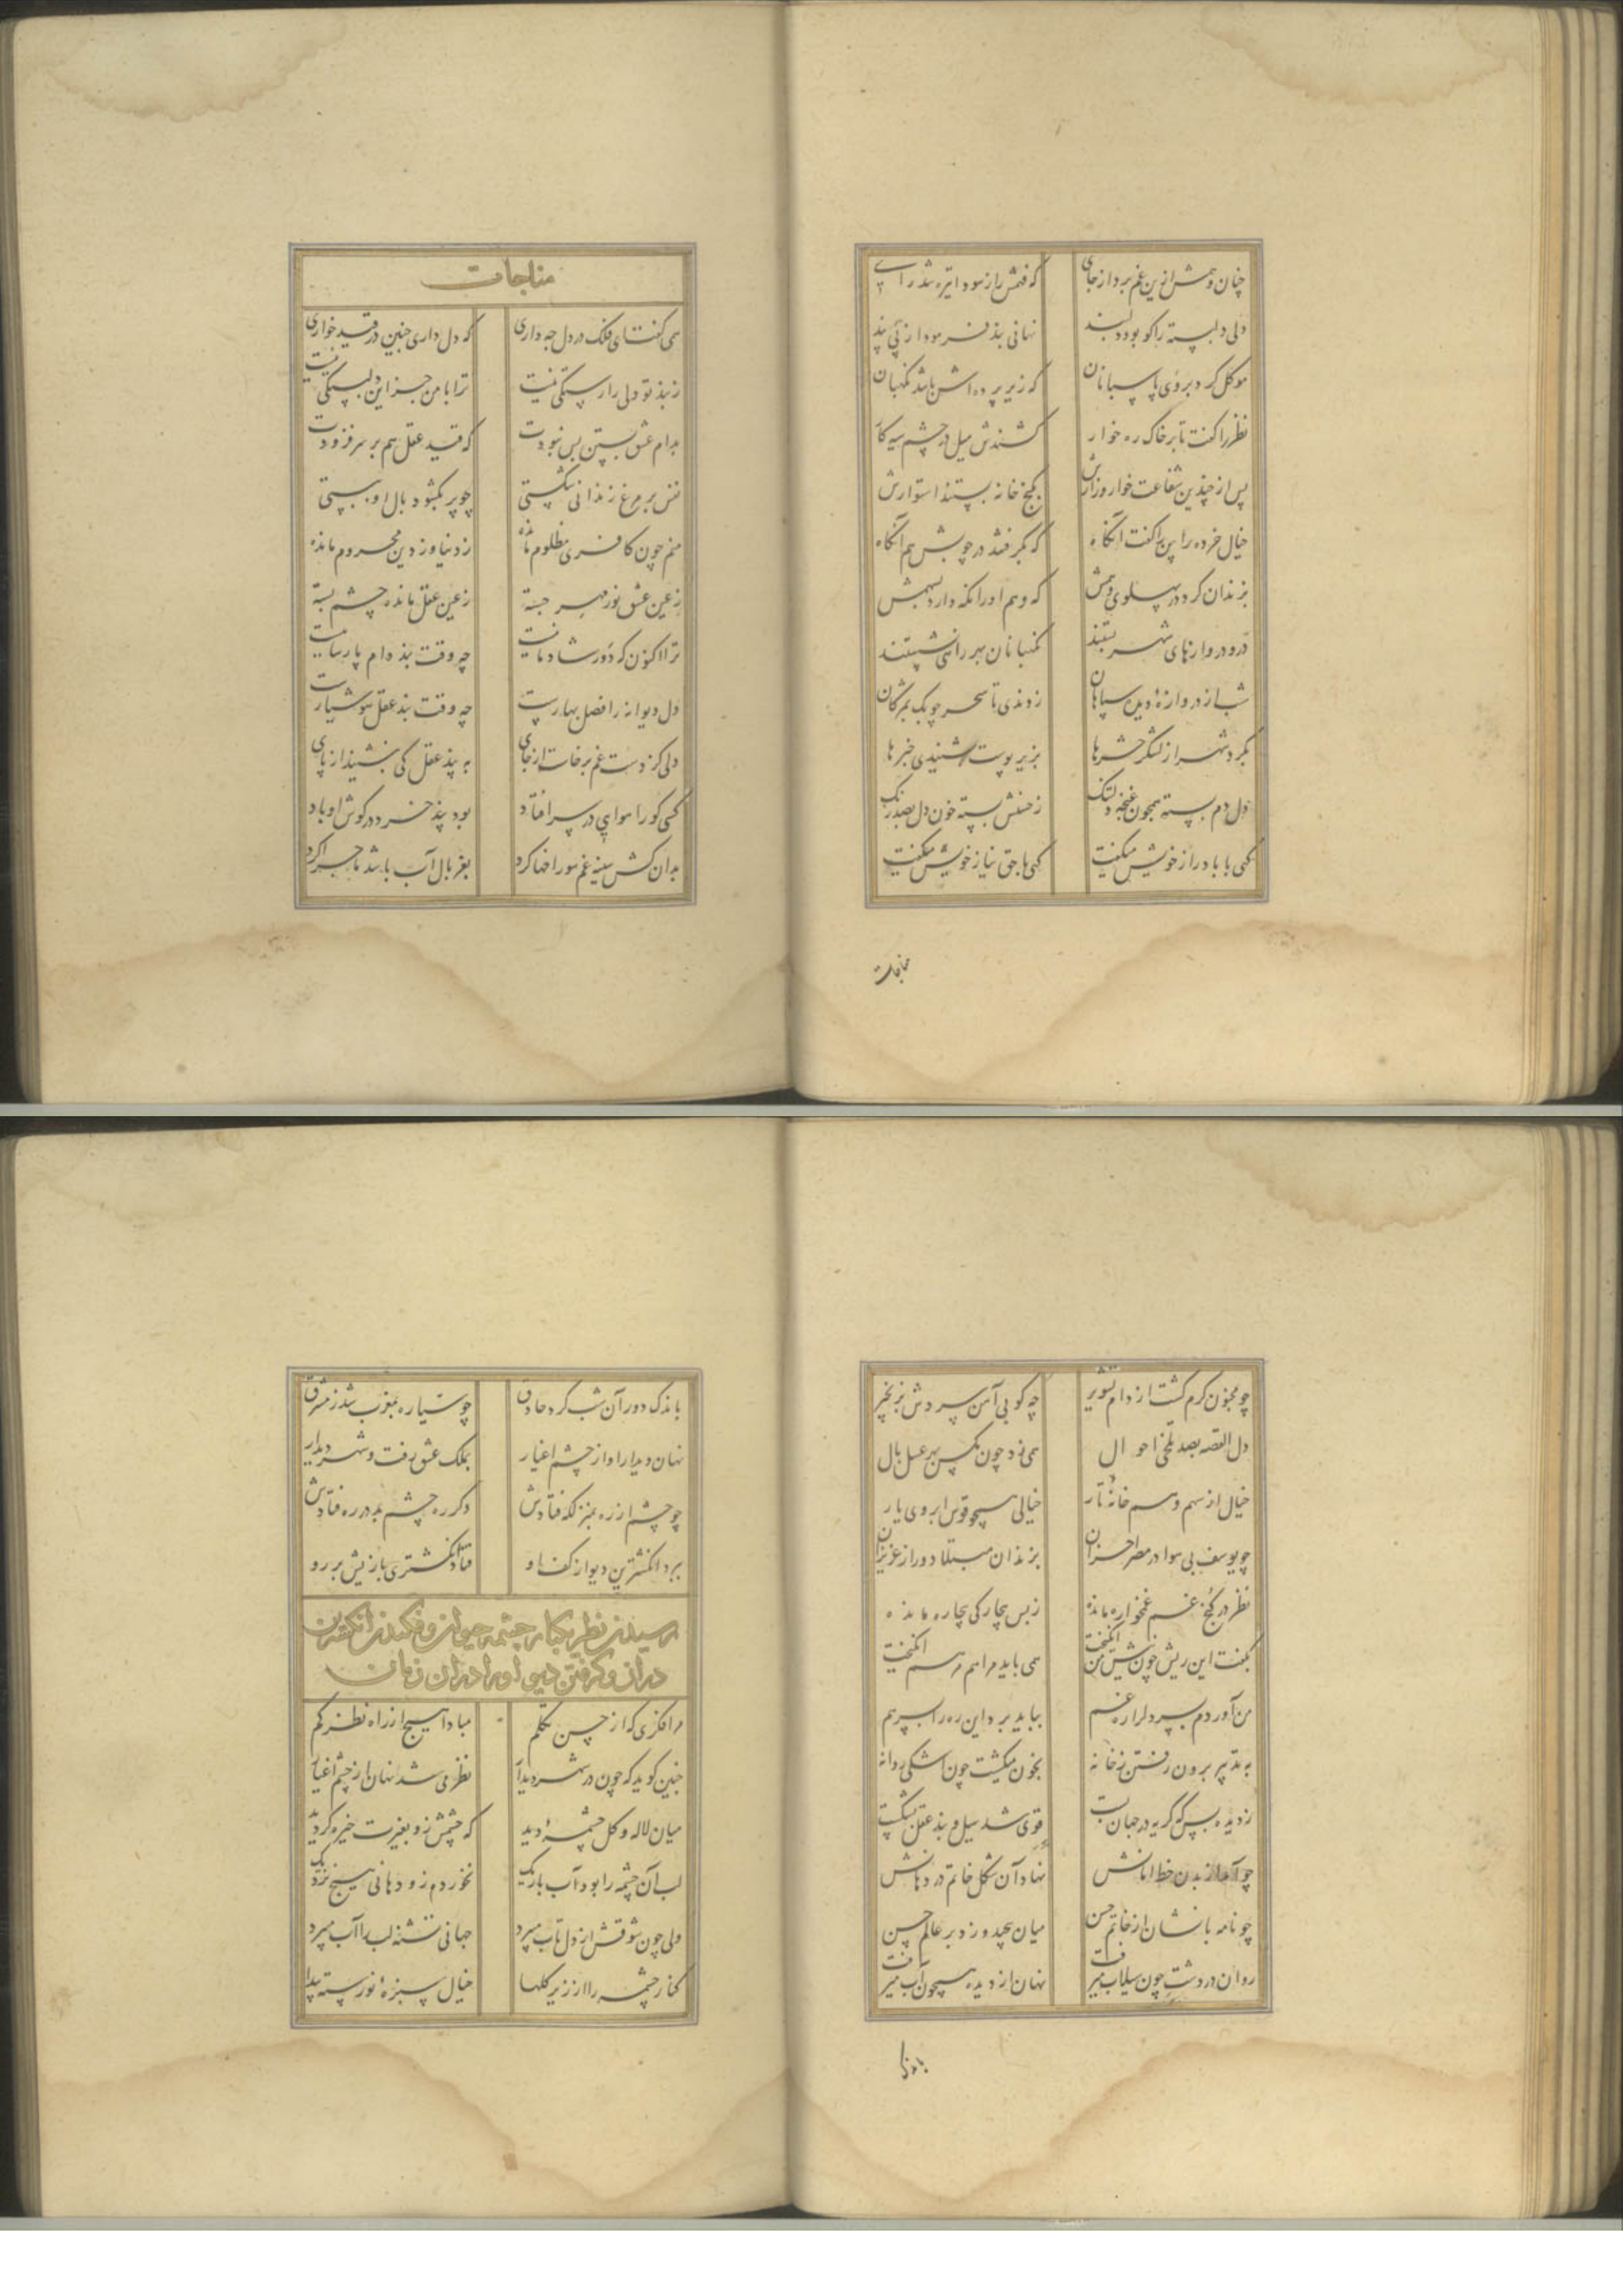 چنان وهمش ازین غم برد از جای
که فهمش را ز سودا تیره شد رای
دلی دلبسته را کو بود دلبند
نهانی بند فرمود از پی پند
موکل کرد بر وی پاسبانان
که زیر پرده اش باشد نگهبان
نظر را گفت تا بر خاک ره خوار
کشندش میل در چشم سیه کار
پس از چندین شفاعت خوار و زارش
بکنج خانه بستند استوارش
خیال خرده را پس گفت آنگاه
که گیرند در چوبش هم آنگاه
بزندان کرد در پهلوی وهمش
که وهم او را نگه دارد بسهمش
در و دروازهای شهر بستند
نگهبانان بهر راهی نشستند
شب از دروازۀ دین سپاهان
زدندی تا سحر چوبک بمژگان
بگرد شهر از لشکر حشرها
بزیر پوست بشنیدی خبرها
دل دم بسته همچون غنچه دلتنگ
ز حبسش بسته خون دل بصد رنگ
گهی با باد راز خویش میگفت
گهی با حق نیاز خویش میگفت
مناجات
مناجات
همی گفت ای فلک در دل چه داری
که دل داری چنین در قید خواری
ز بند تو دلی را رستگی نیست
ترا با من جز این دلبستگی نیست
بدام عشق بستن بس نبودت
که قید عقل هم بر سر فزودت
قفس بر مرغ زندانی شکستی
چو پر بگشود بال او ببستی
منم چون کافری مظلوم مانده
ز دنیا و ز دین محروم مانده
ز عین عشق نور مهر جسته
ز عین عقل مانده چشم بسته
ترا اکنون که دور شادمانیست
چه وقت بند و دام پارسائیست
دل دیوانه را فصل بهارست
چه وقت بند عقل هوشیارست
دلی کز دست غم برخاست از جای
به پند عقل کی بنشیند از پای
کسی کو را هوایی در سر افتاد
بود پند خرد در گوش او باد
بدان کش سینه غم سوراخها کرد
بغربال آب باشد ماجرا کرد
چو مجنون گرم گشت از دام تشویر
چه کوبی آهن سردش بزنجیر
دل القصه بصد تلخی احوال
همی زد چون مگس بهر عسل بال
خیال از سهم وهم خانۀ تار
خیالی همچو قوس ابروی یار
چو یوسف بی هوا در مصر احزان
بزندان مبتلا دور از عزیزان
نظر در کنج غم غمخواره مانده
ز بس بیچارگی بیچاره مانده
بگفت این ریش چون نیش من انگیخت
همی باید مرا هم مرهم انگیخت
من آوردم بسر دل را ره غم
بباید برد این ره را بسر هم
به تدبیر برون رفتن ز خانه
بخون میگشت چون اشکی روانه
ز دیده بس که گریه در جهان بست
قوی شد سیل و بند عقل بشکست
چو آمد از بدن خط امانش
نهاد آن شکل خاتم در دهانش
چو نامه با نشان از خاتم حسن
میان پیچید و زد بر عالم حسن
روان در دشت چون سیلاب میرفت
نهان از دیده همچون آب میرفت
باندک
باندک دور آن شب گرد حاذق
چو سیاره بمغرب شد ز مشرق
نهان دیدار او از چشم اغیار
بملک عشق رفت و شهر دیدار
چو چشم از ره بمنزلگه فتادش
دگر ره چشم بد در ره فتادش
برد انگشترین دیو از کف او
فتاد انگشتری بازیش بر رو
رسیدن نظر بکنار چشمه حیوان و فکندن انگشترین
در آن و گرفتن دیو او را در آن زمان
مبادا هیچ از راه نظر گم
چنین گوید که چون در شهر دیدار
نظر می شد نهان از چشم اغیار
میان لاله و گل چشمۀ دید
که چشمش زو بغیرت خیره گردید
لب آن چشمه را بود آب باریک
نخورده زو دهانی هیچ نزدیک
ولی چون شوقش از دل تاب میبرد
جهانی تشنه لب را آب میبرد
کنار چشمه را از زیر گلها
خیال سبزۀ نورسته پیدا